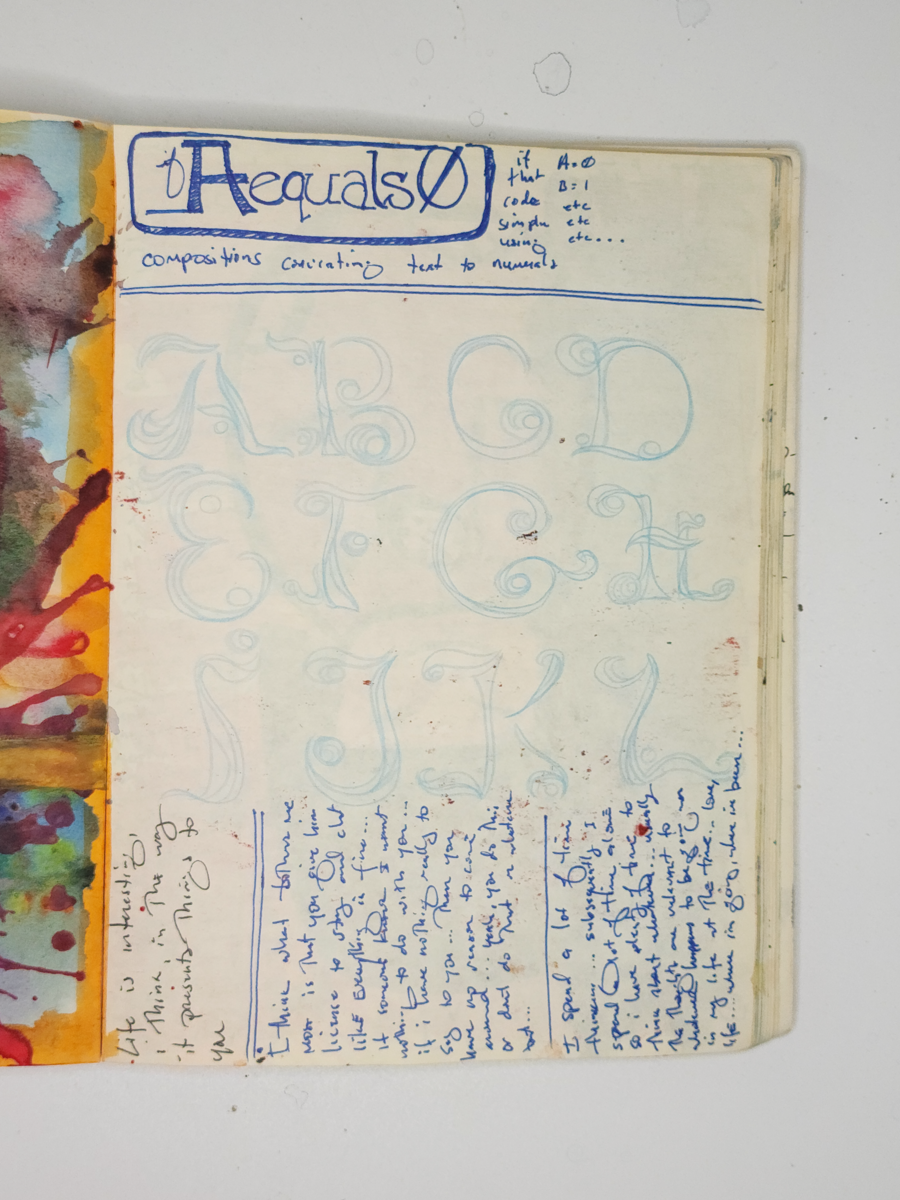 if A equals Ø
if A=Ø
that B=1
code etc
simple etc
using etc...
compositions text to numerals
A B C D
E F G H
I J K L
Life is interesting,
i think, in the way
it presents things to
you
I think what bothers me
now is that you give him
license to stay and act
like everything is fine...
if someone knows I want
nothing to do with you...
if i have nothing really to
say to you... then you
have no reason to come
around... yeah, you do this
or don't do that or whatever
but...
I spend a lot of time
subsequently I
spend a lot of time alone
so i have plenty of time to
think about whatever... usually
the thoughts are relevant to
whatever happens to be going on
in my life at the time... love,
life... where i'm going, where i've been...